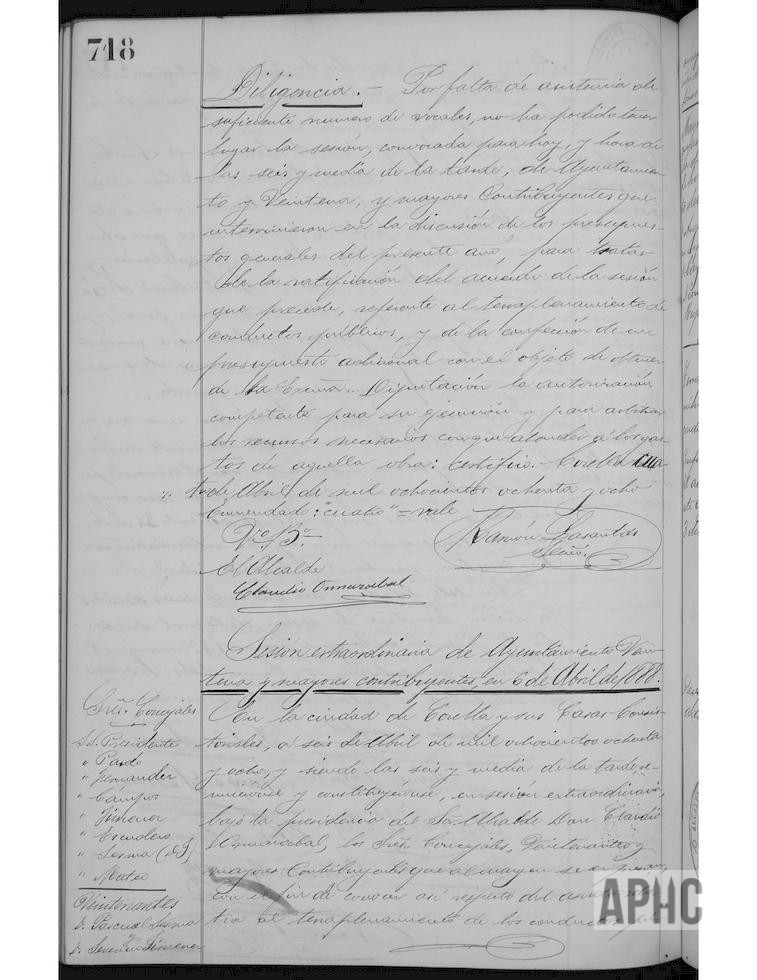 718
Diligencia. - Por falta de asistencia de
suficiente numero de vocales, no ha podido tener
lugar la sesión, convocada para hoy, y hora de
las seis y media de la tarde, de Ayuntamien-
to y Veintena, y mayores Contribuyentes que
intervinieron en la discusión de los presupues-
tos generales del presente año, para tratar
de la ratificación del acuerdo de la sesión
que precede, referente al terraplenamiento de
conductos públicos, y de la confección de un
presupuesto adicional con el objeto de obtener
de la Excma. Diputación la autorización
competente para su ejecución y para arbitrar
los recursos necesarios con que atender a los gas-
tos de aquella obra: certifico. Corella cua-
tro de Abril de mil ochocientos ochenta y ocho
Enmendado: "cuatro" = vale
Vo. Bo.
El Alcalde
Ramón Lasantas
Srio.
Claudio
Sesión extraordinaria de Ayuntamiento Vein-
tena y mayores contribuyentes, en 6 de Abril de 1888.
Sres. Concejales
Sr. Presidente
" Pardo
" Fernandez
" Cámpos
" Jimenez
" Escudero
" Sesma
" Mateo
Veintenantes
D. Pascual Sesma
D. Jimenez
En la ciudad de Corella y sus Casas Consis-
toriales, á seis de Abril de mil ochocientos ochenta
y ocho, y siendo las seis y media de la tarde se
reunieron y constituyeron, en sesion extraordinaria,
bajo la presidencia del Sr. Alcalde Don Claudio
los Sres. Concejales, Veintenantes y
mayores Contribuyentes que al margen se expresan,
con el fin de conocer
al terraplenamiento de los conductos
APHC